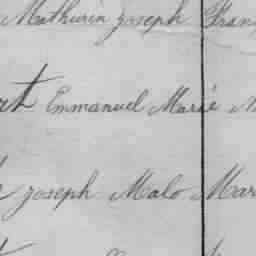 Mathurin joseph Fran
at Emmanuel Marie
joseph Malo Mar